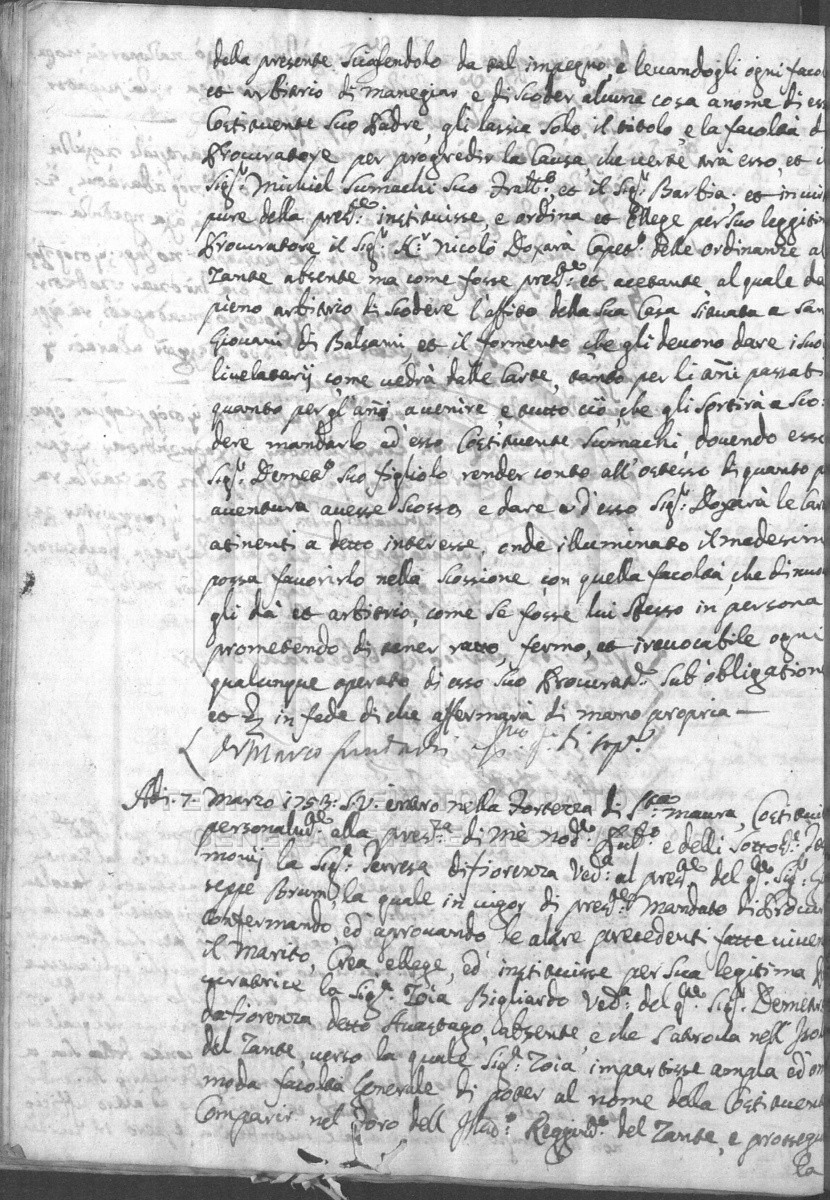 della presente sicofendolo da tal impegno, e levandogli ogni facol
et arbitrio di manegiar e di scoder alcuna cosa a nome di es
Costituente suo Padre, gli lassia solo il titolo, e la facoltà d
Procuratore per progredir la Causa, che verte trà esso, et i
Sigr. Michiel Sumachi suo Fratt.o et il Sigr. Barbia, et in vi
pure della pres.te instituisse, e ordina et ellege per suo leggitim
Procuratore il Sigr. Kr. Nicolò Doxarà Capet.o delle ordinanze al
Zante absente ma come fosse pres.te et acetante, al quale da
pieno arbitrio di scodere l'affitto della sua Casa situata a San
Giovani di Balsami, et il formento che gli devono dare i suoi
livelatarij come vedrà dalle Carte, tanto per li añi passati
quanto per gl'añi avenire, e tutto ciò, che gli sortirà a sco:
dere mandarlo ad'esso Costituente Sumachi, dovendo esso
Sigr. Demet.o suo figliolo render conto all'ostesso di quanto p
aventura avesse scosso, e dare ad'esso Sigr. Doxarà le Car
atinenti a detto interesse, onde illuminato il medesim
possa favorirlo nella scossione con quella facoltà, che di nuo
gli dà et arbitrio, come se fosse lui stesso in persona
prometendo di tener ratto, fermo, et irevocabile ogni
qualunque operato di esso suo Procurat.r sub obligatione
et in fede di che affermarà di mano propria —
Marco Sumachi
Adi. 7. Marzo 1753. S.V. entro nella Fortezza di S.ta Maura, Costitui
personalm.te alla pres.za di mè Nod.o Pub.o e delli sottos.ti Tes
monij la Sig.ra Terresa difiorenza Ved.a al pres.te del q.m Sigr. Gi
seppe Bruni, la quale in vigor di pres.te Mandato di Procur
confermando, ed'aprovando le altre precedenti fatte viven
il Marito, Crea ellege, ed' instituisse per sua legitima P
curatrice la Sig.ra Zoia Bigliardo Ved.a del q.m Sigr. Demetr
dafiorenza detto absente, e che s'atrova nell' Isol
del Zante, verso la quale Sig.ra Zoia impartisse ampla ed'on
moda facoltà Generale di poter al nome della Costituent
Comparir nel Foro dell' Ill.mo Reggim.to del Zante, e prossegu
la
TZENEΛ